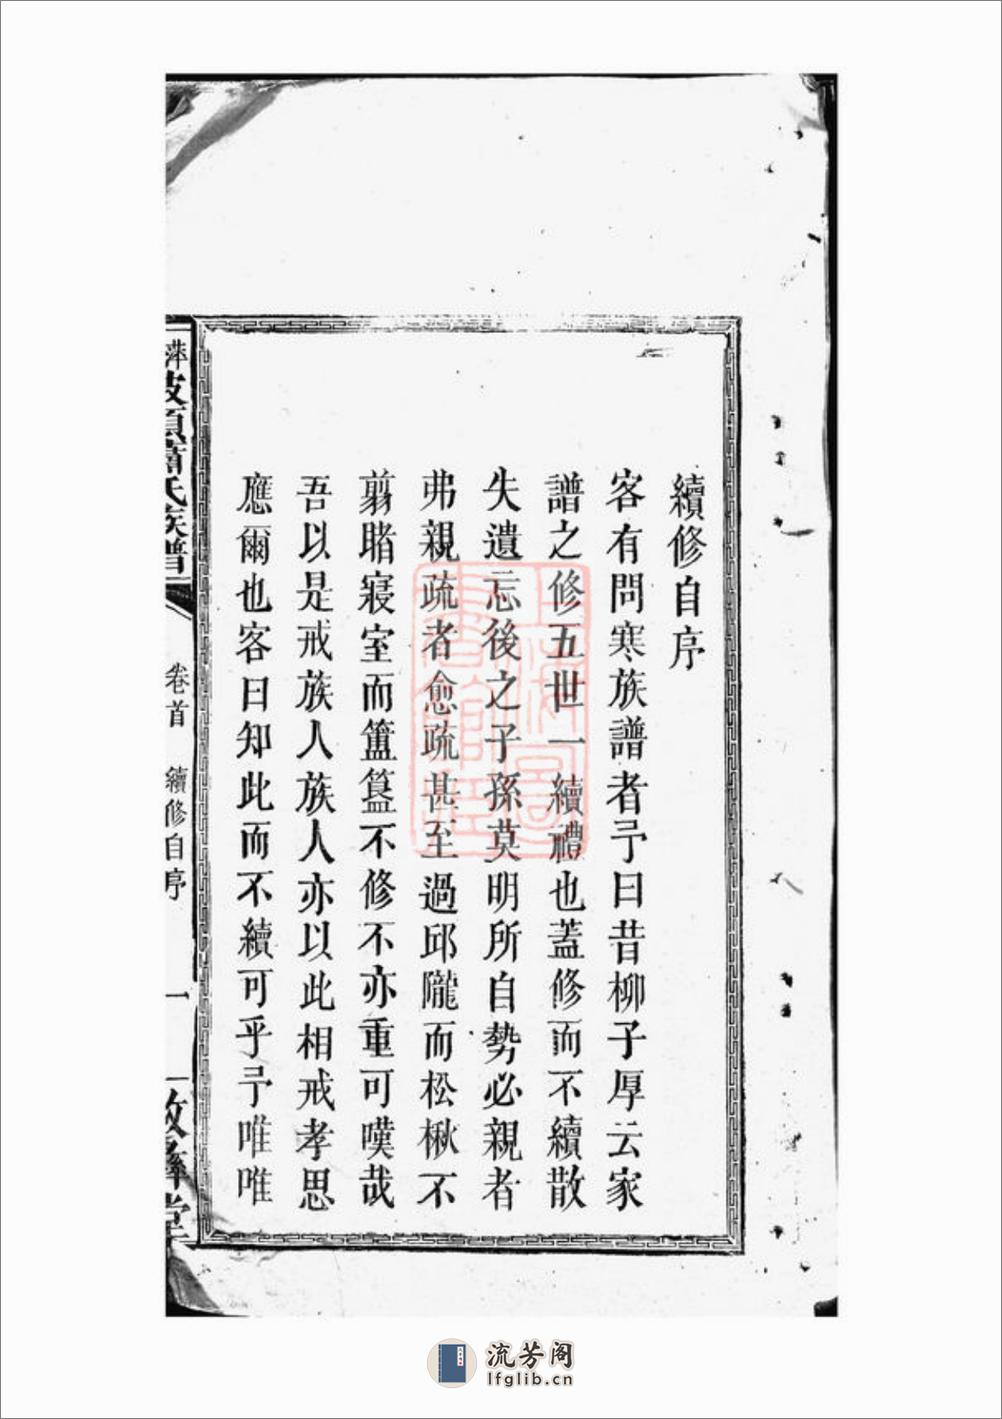 續修自序
客有問寒族譜者予曰昔柳子厚云家
譜之修五世一續禮也蓋修而不續散
失遺忘後之子孫莫明所自勢必親者
弗親疏者愈疏甚至過邱隴而松楸不
翦睹寢室而簠簋不修不亦重可嘆哉
吾以是戒族人族人亦以此相戒孝思
應爾也客曰知此而不續可乎予唯唯
萍 蕭氏族譜
卷首
續修自序
一
敘彝堂
上海圖書館藏
流芳阁
lfglib.cn